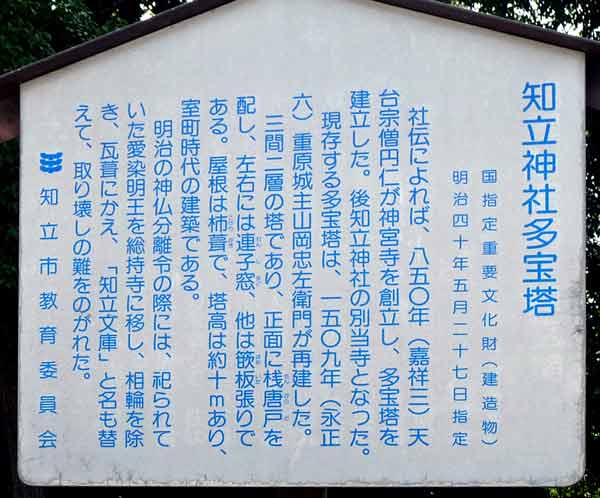 知立神社多宝塔
国指定重要文化財(建造物)
明治四十年五月二十七日指定
社伝によれば、八五〇年(嘉祥三)天
台宗僧円仁が神宮寺を創立し、多宝塔を
建立した。後知立神社の別当寺となった。
現存する多宝塔は、一五〇九年(永正
六)重原城主山岡忠左衛門が再建した。
三間二層の塔であり、正面に桟唐戸を
配し、左右には連子窓、他は嵌板張りで
ある。屋根は柿葺で、塔高は約十mあり、
室町時代の建築である。
明治の神仏分離令の際には、祀られて
いた愛染明王を総持寺に移し、相輪を除
き、瓦葺にかえ、「知立文庫」と名も替
えて、取り壊しの難をのがれた。
知立市教育委員会